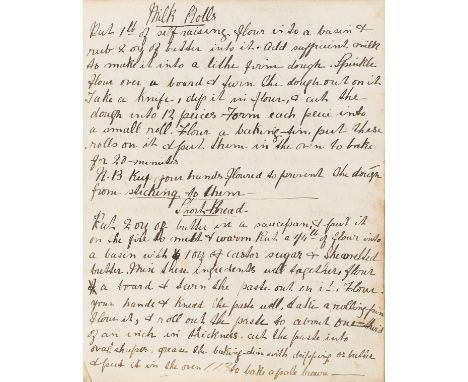 Milk Rolls
Put 1 lb of self raising flour into a basin &
rub 2 ozs of butter into it. Add sufficient milk
to make it into a lithe firm dough. Sprinkle
flour over a board & turn the dough out on it
Take a knife, dip it in flour, & cut the
dough into 12 peices. Form each peice into
a small roll. Flour a baking-tin, put these
rolls on it & put them in the oven to bake
for 20 minutes
N.B Keep your hands floured to prevent the dough
from sticking to them
Short-Bread
Put 2 ozs of butter in a saucepan, & put it
on the fire to melt & warm Put a 1/4 lb of flour into
a basin with 1 oz of castor sugar & the melted
butter. Mix these ingredients well together, flour
a board & turn the paste out on it. Flour
your hands & knead the paste well, take a rolling pin
flour it, & roll out the paste to about one-third
of an inch in thickness. cut the paste into
oval shapes, grease the baking-tin with dripping or butter
& put it in the oven to bake a pale brown